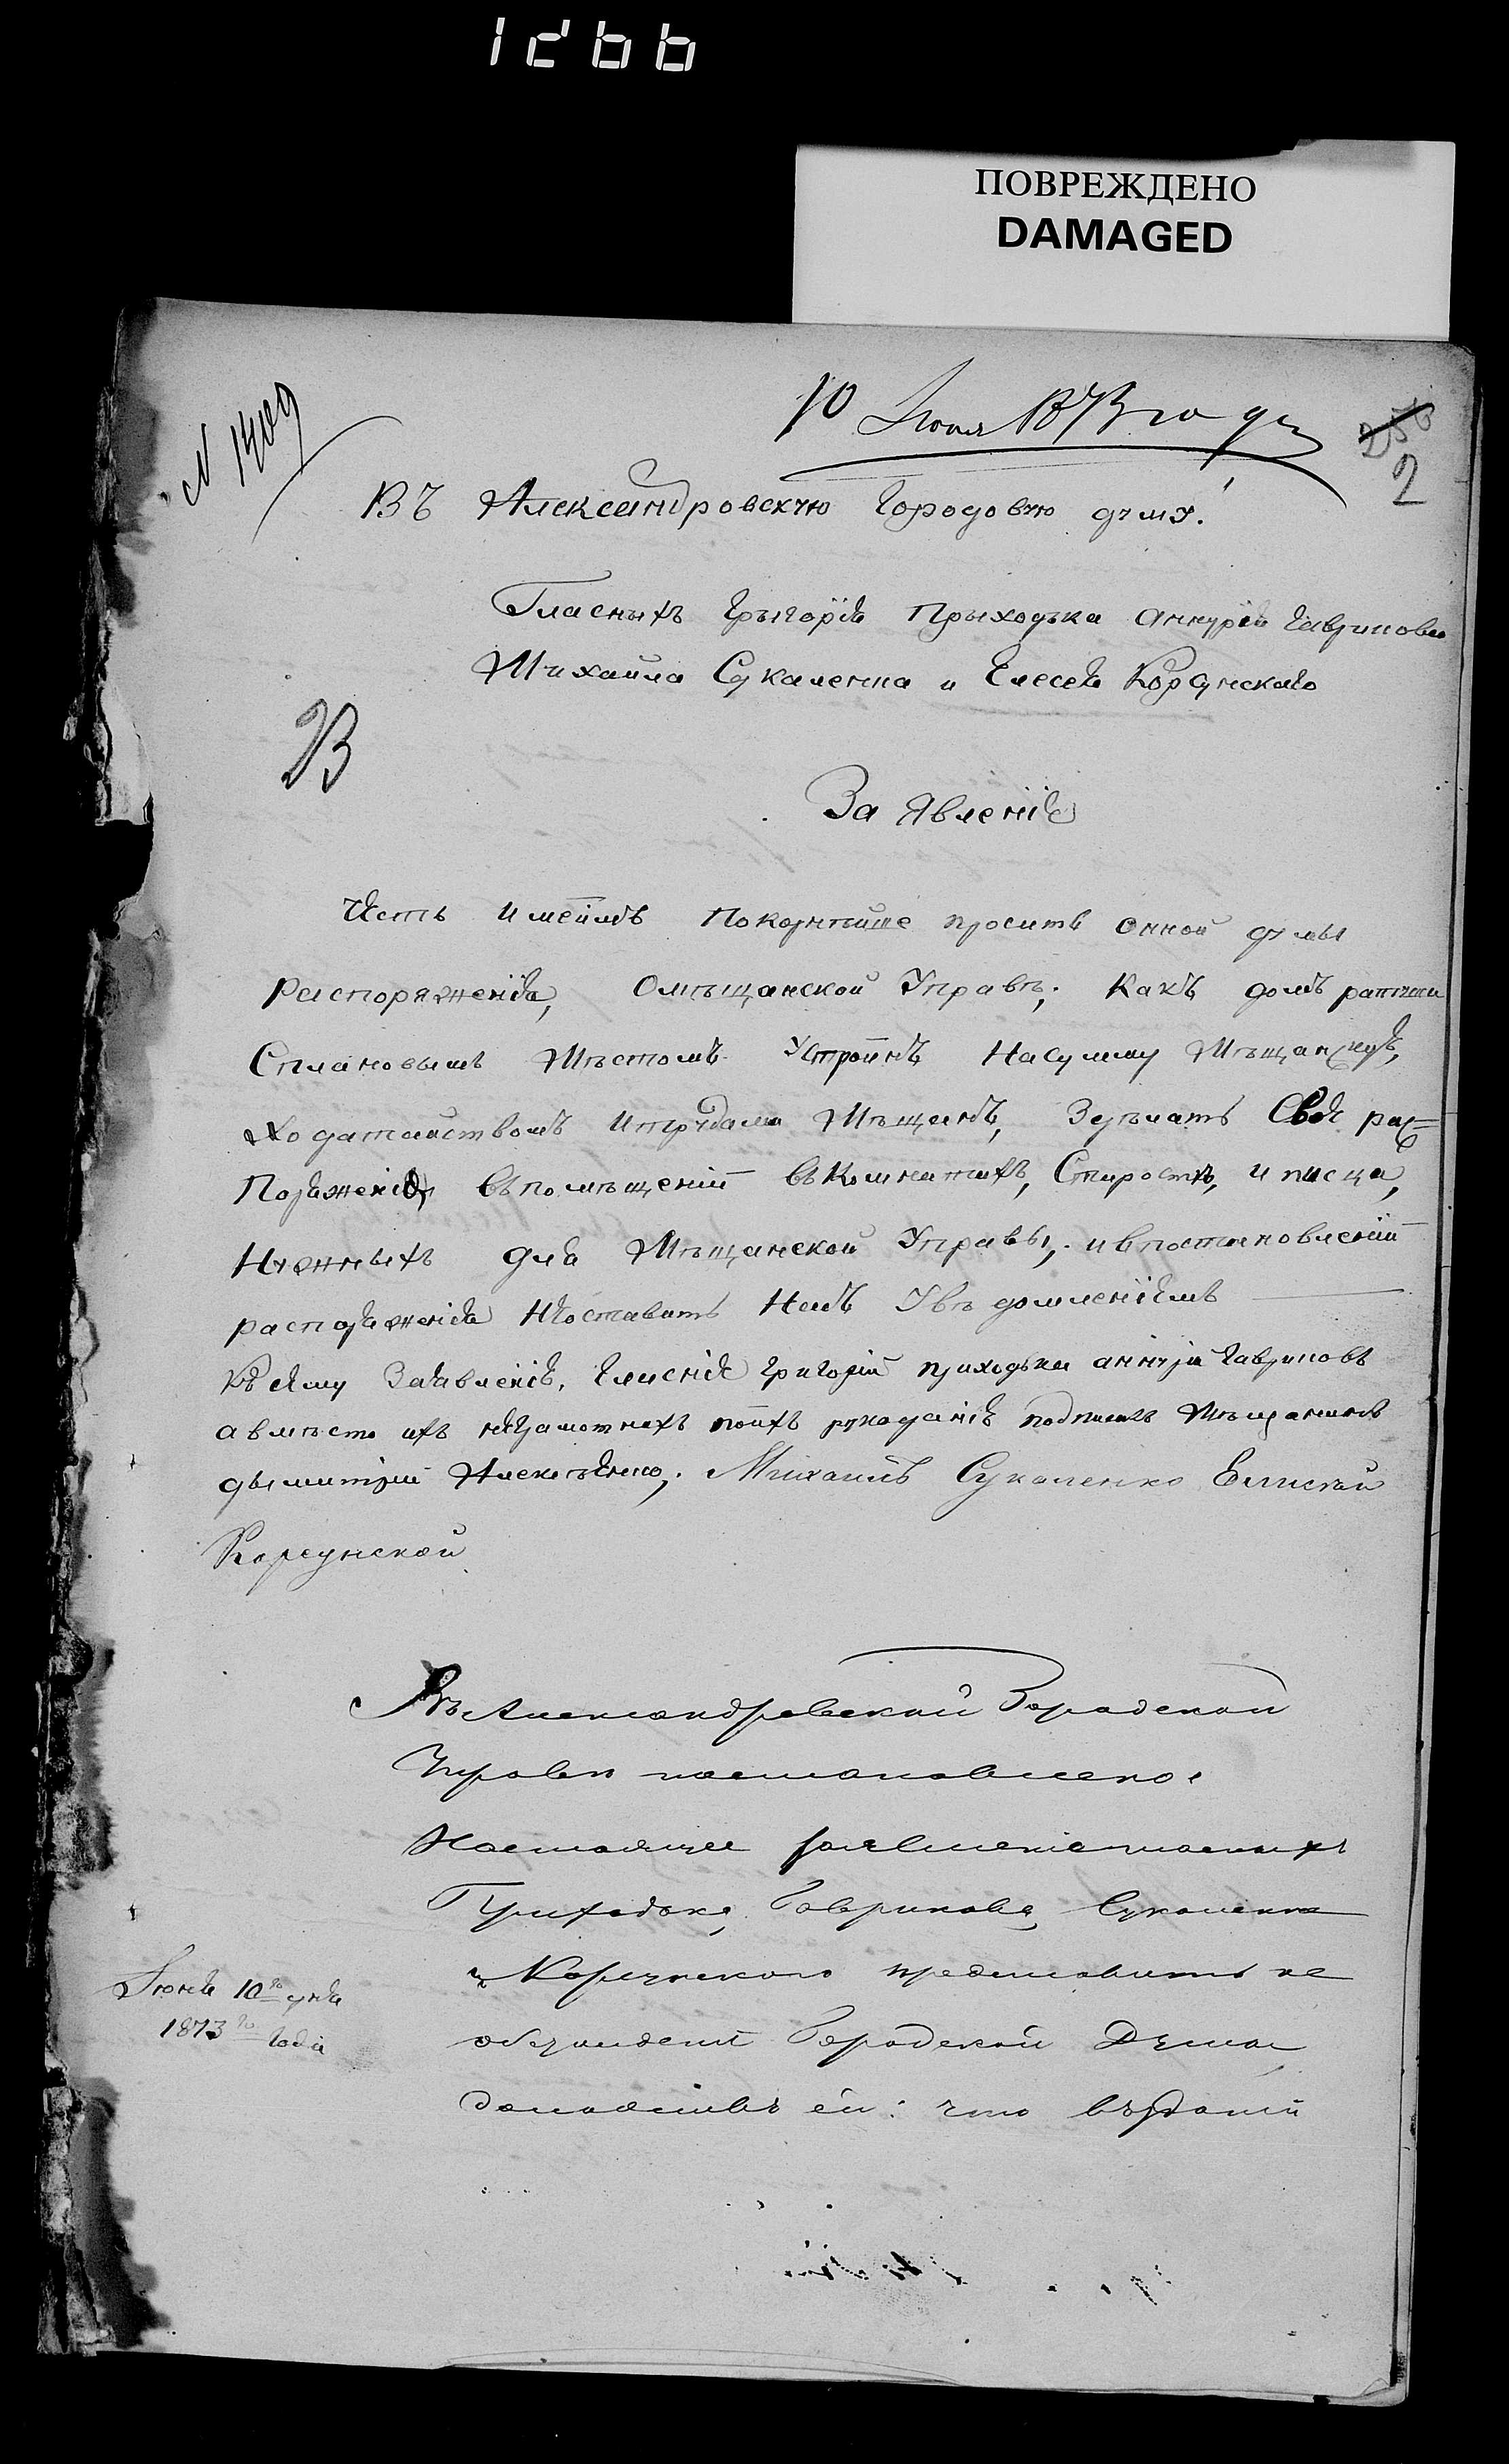 1266
ПОВРЕЖДЕНО
DAMAGED
N 1409
10 Июня 1873 года
2
Въ Александровскую Городовую думу.
Гласныхъ Грыгорія Прыходька Гаврикова
Михаила Сукаленка и Елесея Корсунскаго
За явленіе
Честь имеимъ Покорнейше просить онной думы
распоряженія, Омѣщанской Управѣ; Какъ домъ ратуши
Сплановымъ Мѣстомъ Устроинъ Насумму Мѣщанскую,
Ходатайствомъ Итрудами Мѣщанъ, Здѣлать Свое рас=
Поряженіе, въпомѣщеніи въКомнатахъ, Старостѣ, и писца,
Нужныхъ для Мѣщанской Управы, ивпостановленіи
распоряженія Неоставить Насъ Увѣдомленіемъ
Къ Заявленію, Григорій приходька Гавриковъ
авмѣсто ихъ неграмотнахъ поихъ рукоданію подписалъ Мѣщанинъ
дымитрій Алексѣенко, Михаилъ Сукаленко Елисей
Корсунской
Въ Александровской Городской
Управѣ постановлено:
Настоящее заявленіе гласныхъ
Приходька, Гаврикова, Сукаленка
и Корсунского представить на
обсужденіе Городской Думы
доложивъ ей: что въ зданіи
Іюня 10го дня
1873го года